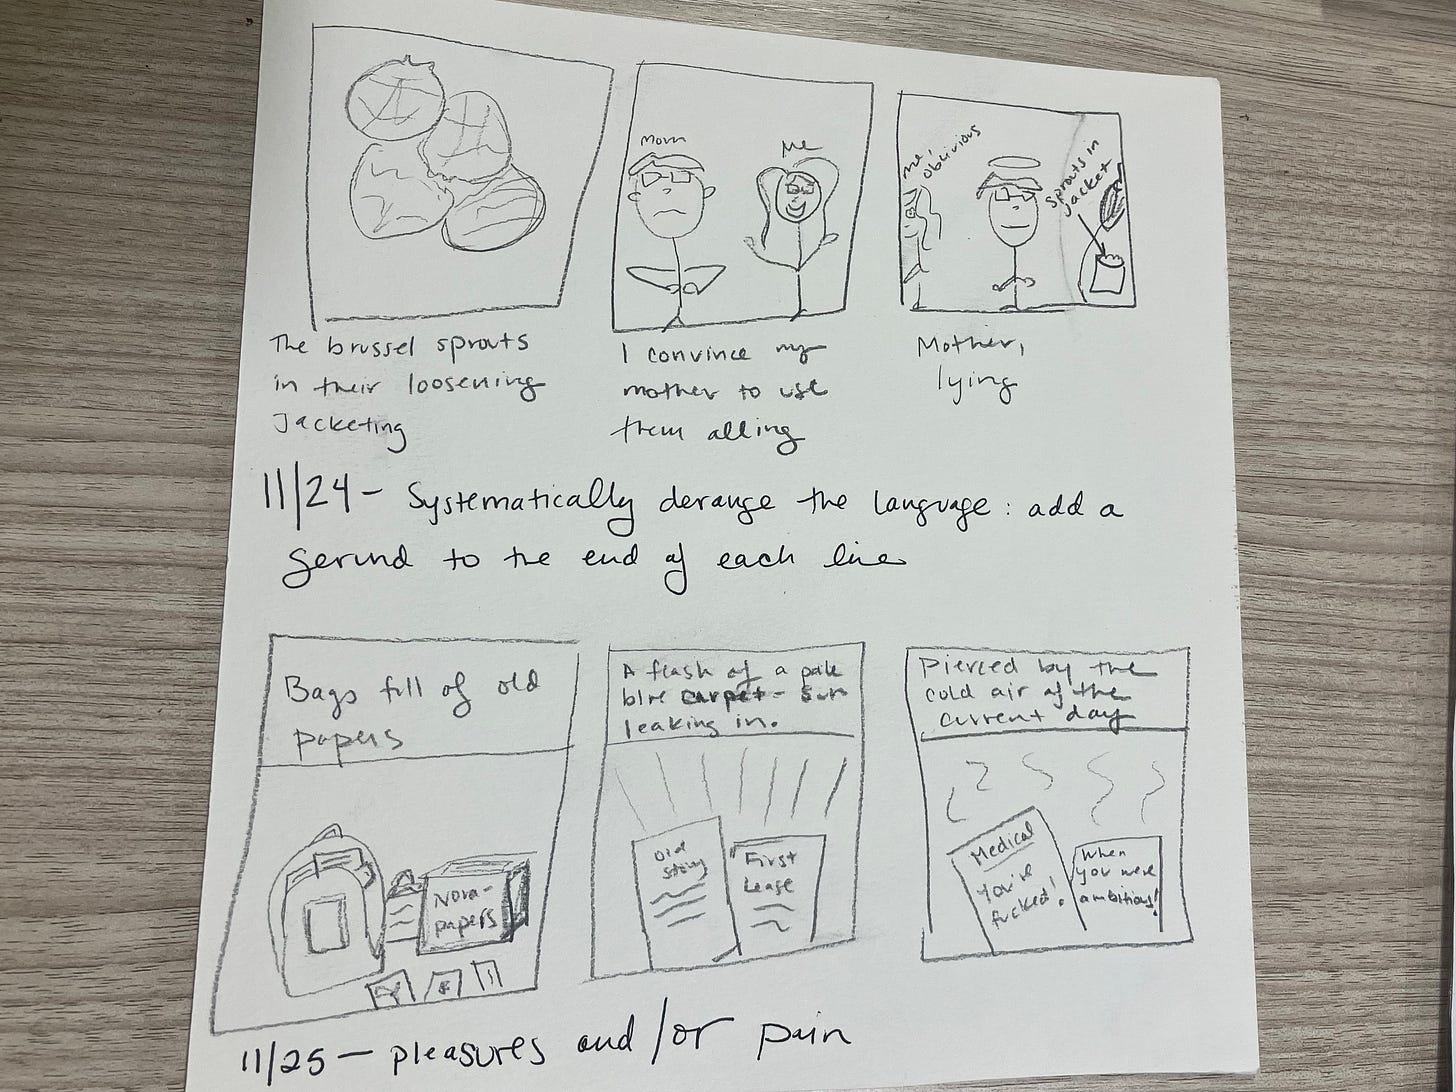 Mom
Me
me,
oblivious
sprouts in
jacket
The brussel sprouts
in their loosening
Jacketing
I convince my
mother to use
them alling
Mother,
lying
11/24 - Systematically derange the language: add a
gerund to the end of each line
Bags full of old
papers
Nora-
papers
A flash of a pale
blue carpet - sun
leaking in.
Old
story
First
Lease
Pierced by the
cold air of the
current day
Medical
You've
fucked!
When
you were
ambitious!
11/25 - pleasures and/or pain